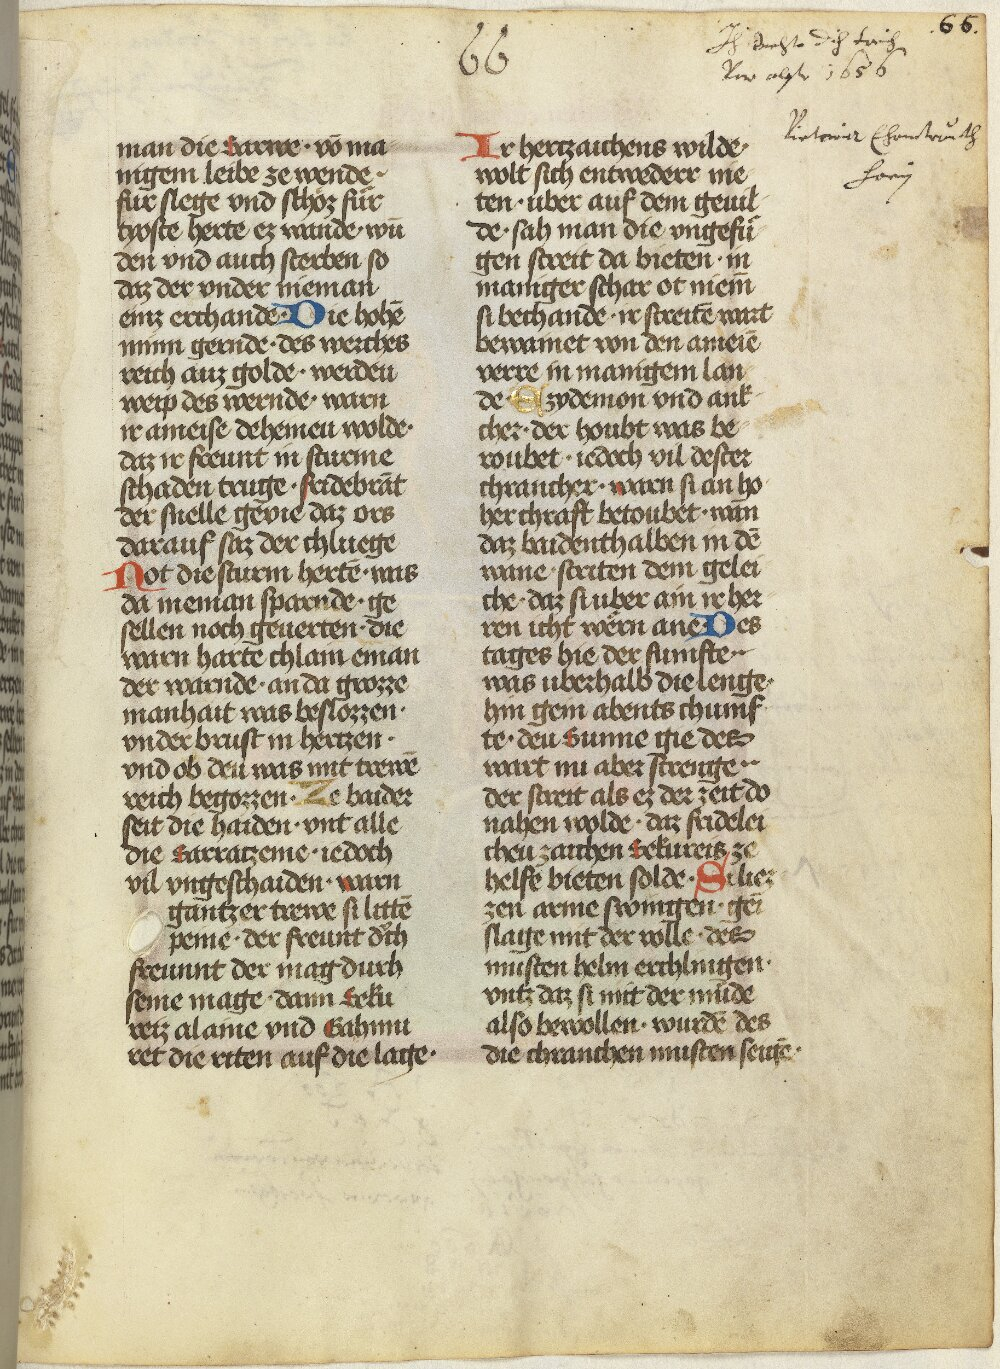 66
66.
Ich
1656
man die sarwe · võ ma
nigem leibe ze wende ·
für slege vnd schöz für
tyoste herte ez wande · wũ
den vnd auch sterben so
daz der vnder nieman
einz erchande · Die hohẽ
minn gernde · des werches
reich auz golde · werdeu
werp des wernde · warn
ir ameise dehemeu wolde ·
daz ir freunt in sturme
schaden truge · fridebrãt
der snelle gevie daz ors
darauf saz der chluege
Not die sturm hertẽ · was
da nieman sparnde · ge
sellen noch geuerten · die
warn hartẽ chlain eman
der warnde · an da grozze
manhait was beslozzen ·
vnder brust in hertzen ·
vnd ob deu was mit trewẽ
reich begozzen · Ze baider
seit die haiden · vnt alle
die sarraczeine · iedoch
vil vngeschaiden · warn
gantzer trewe si littẽ
peine · der freunt durch
freunnt der mag durch
seine mage · dann seku
reiz alaine vnd Gahmu
ret die riten auf die lage ·
Ir hertzaichens wilde ·
wolt sich entwederr nie
ten · uber auf dem geuil
de · sah man die vngefü
gen streit da bieten · in
maniger schar ot niem̃
si bechande · ir streitẽ wart
bewainet von den ameiẽ
verre in manigem lan
de · Azydemon vnd ank
cher · der houbt was be
roubet · iedoch vil dester
chrancher · warn si an ho
her chraft betoubet · wan
daz baidenthalben in dẽ
wane · striten dem gelei
che · daz si uber ain ir her
ren icht wern ane Des
tages hie der sumfte ··
was uberhalb die lenge ·
hin gein abents chumf
te · deu sunne gie des
wart nu aber strenge ··
der streit als ez der zeit do
nahen wolde · daz fridelei
cheu zaichen sekureis ze
helfẽ bieten solde · Si liez
zen arme swingen · gei
slage mit der volle · des
musten helm erchlingen ·
vntz daz si mit der müde
also bewollen · wurdẽ des
die chranchen musten seigẽ ·